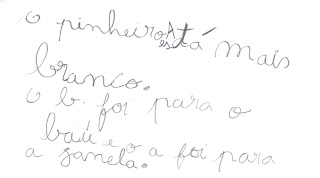 o pinheiro está mais
branco.
o b. foi para o
baú e o a foi para
a janela.